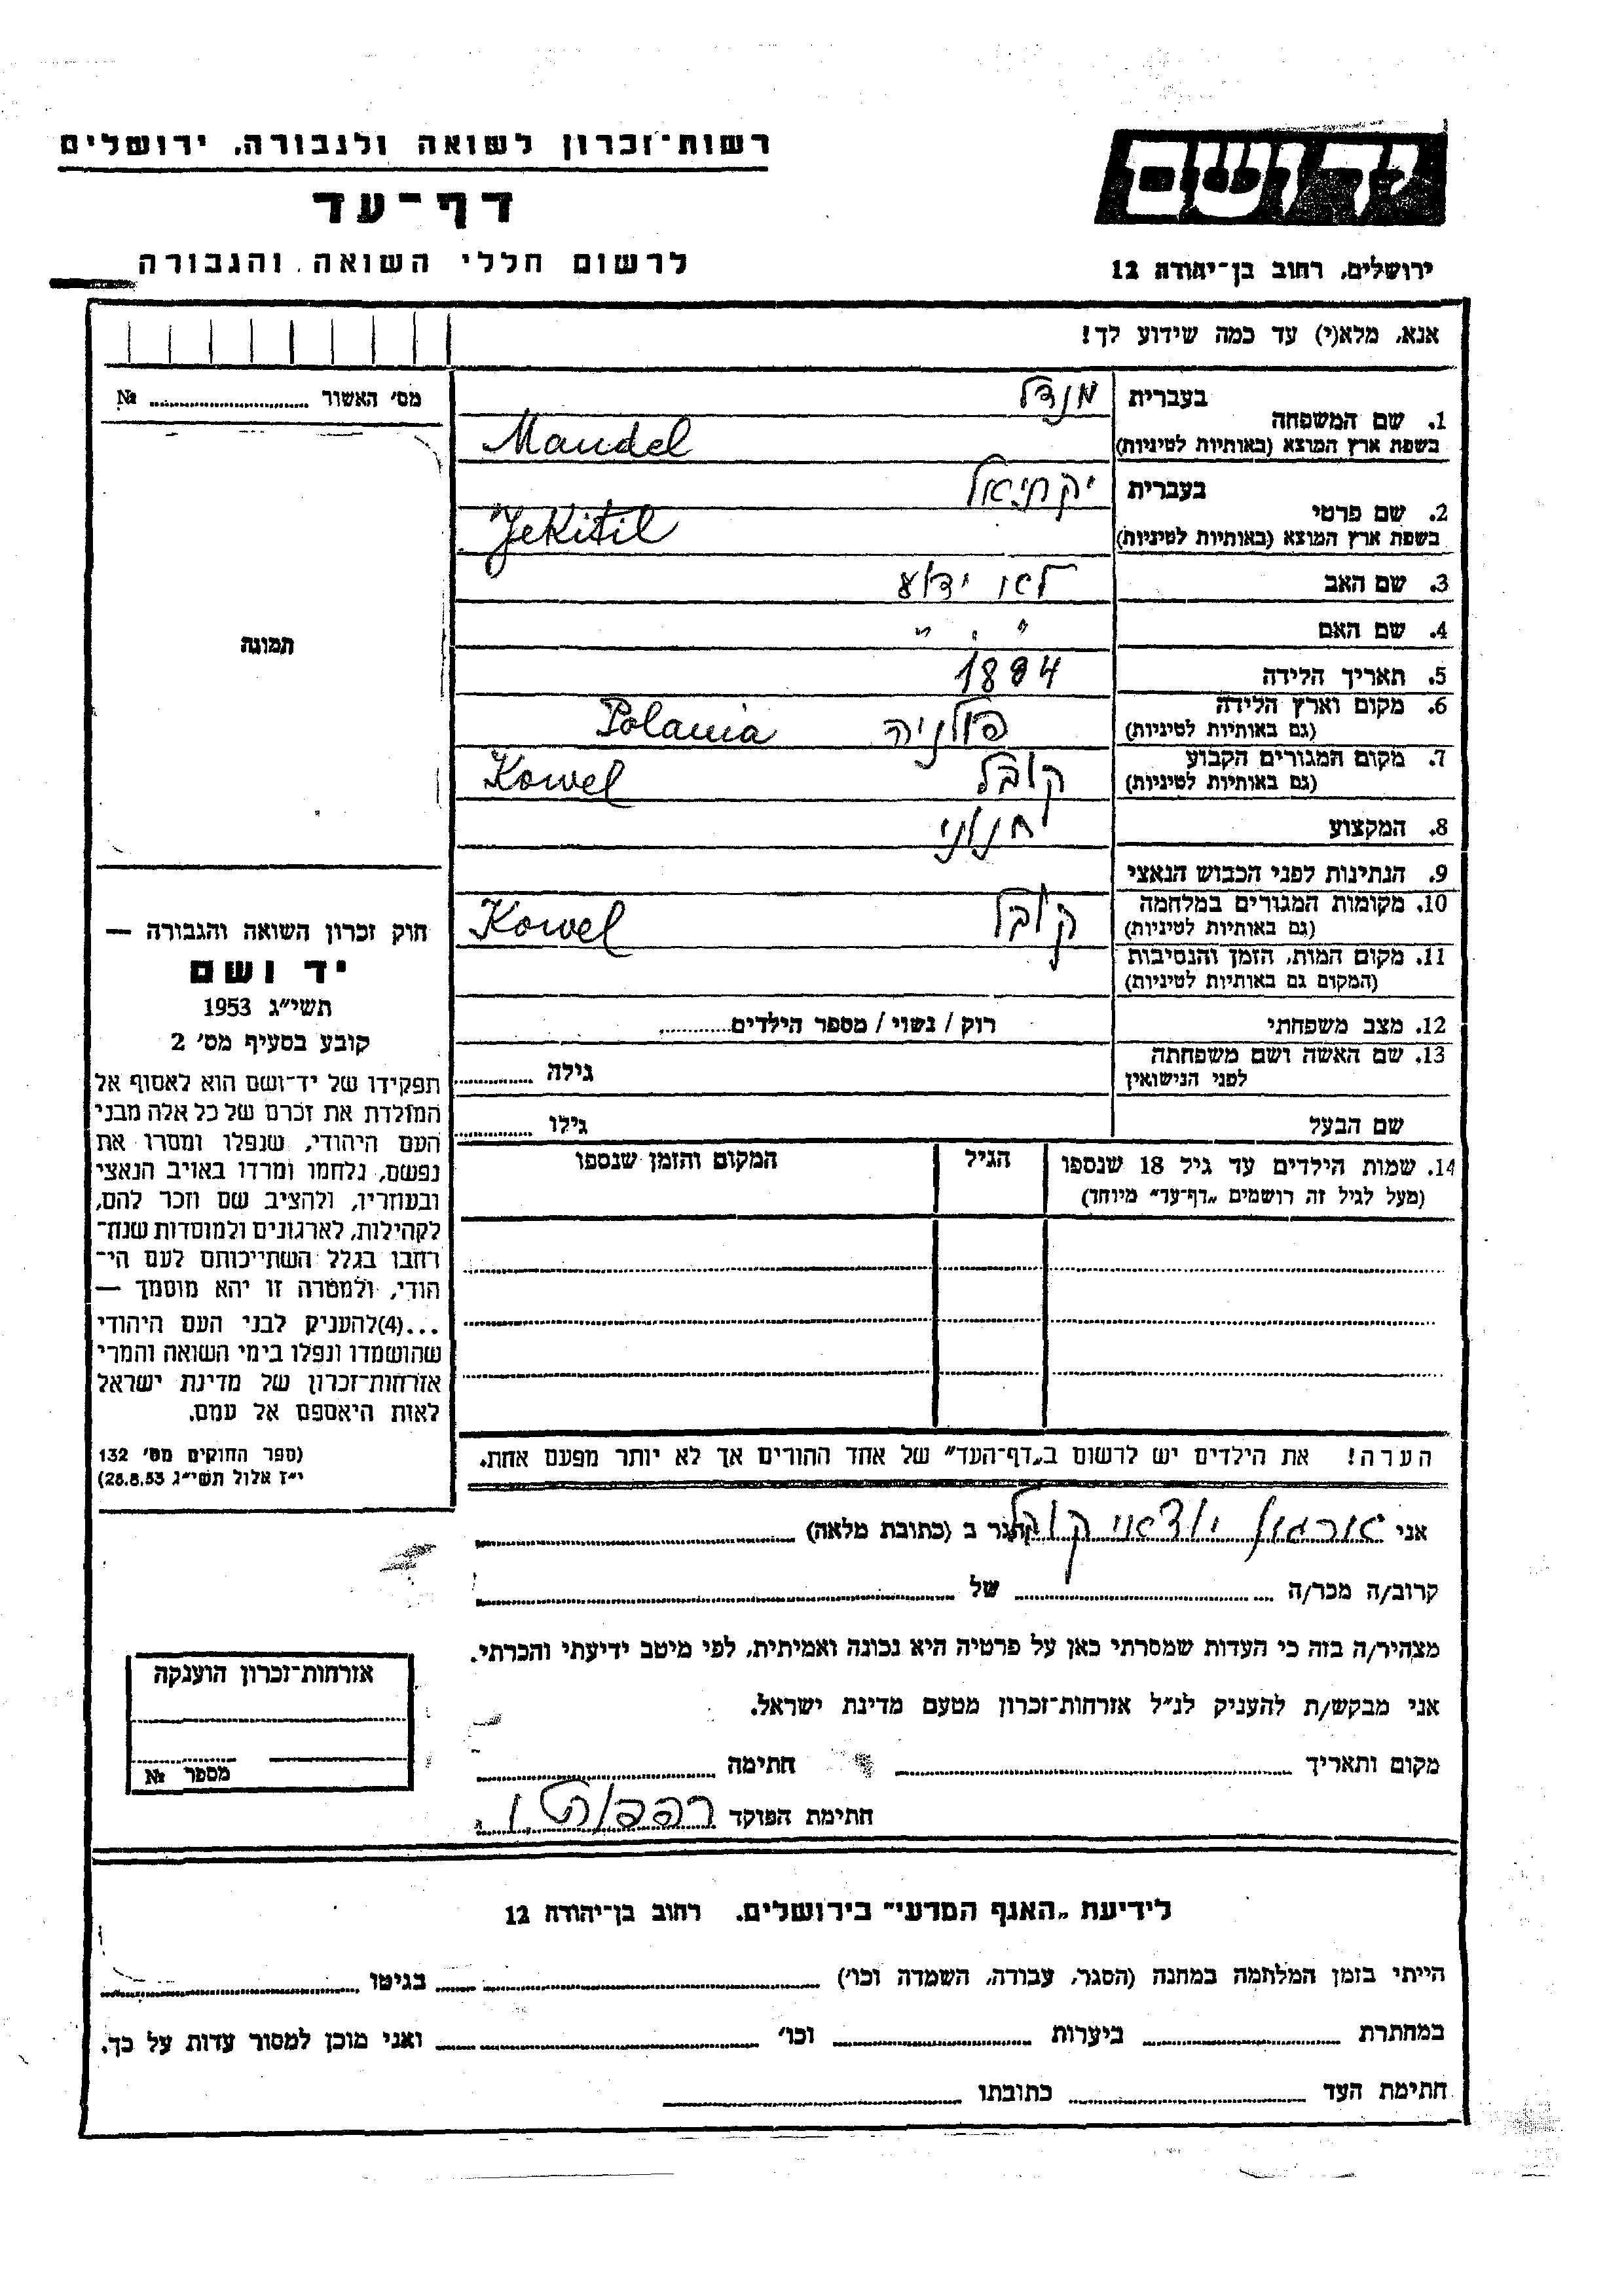 רשות־זכרון לשואה ולגבורה, ירושלים
יד ושם
דף־עד
לרשום חללי השואה והגבורה
ירושלים, רחוב בן־יהודה 12
אנא, מלא(י) עד כמה שידוע לך!
מס' האשור № ............
בעברית מנדל
1. שם המשפחה
בשפת ארץ המוצא (באותיות לטיניות) Mandel
בעברית יקתיאל
2. שם פרטי
בשפת ארץ המוצא (באותיות לטיניות) Jekitil
3. שם האב לא ידוע
4. שם האם " . "
תמונה
5. תאריך הלידה 1884
6. מקום וארץ הלידה פולניה Polania
(גם באותיות לטיניות)
7. מקום המגורים הקבוע קובל Kowel
(גם באותיות לטיניות)
8. המקצוע חנוני
9. הנתינות לפני הכבוש הנאצי
10. מקומות המגורים במלחמה קובל Kowel
(גם באותיות לטיניות)
11. מקום המות, הזמן והנסיבות
(המקום גם באותיות לטיניות)
12. מצב משפחתי רוק / נשוי / מספר הילדים............
13. שם האשה ושם משפחתה גילה ............
לפני הנישואין
שם הבעל גילו ............
14. שמות הילדים עד גיל 18 שנספו הגיל המקום והזמן שנספו
(מעל לגיל זה רושמים „דף־עד" מיוחד)
חוק זכרון השואה והגבורה —
יד ושם
תשי"ג 1953
קובע בסעיף מס' 2
תפקידו של יד־ושם הוא לאסוף אל
המולדת את זכרם של כל אלה מבני
העם היהודי, שנפלו ומסרו את
נפשם, נלחמו ומרדו באויב הנאצי
ובעוזריו, ולהציב שם וזכר להם,
לקהילות, לארגונים ולמוסדות שנח־
רחבו בגלל השתייכותם לעם הי־
הודי, ולמטרה זו יהא מוסמך —
...(4)להעניק לבני העם היהודי
שהושמדו ונפלו בימי השואה והמרי
אזרחות־זכרון של מדינת ישראל
לאות היאספם אל עמם.
(ספר החוקים מס' 132
י"ז אלול תשי"ג 28.8.53)
הערה! את הילדים יש לרשום ב„דף־העד" של אחד ההורים אך לא יותר מפעם אחת.
אני ארגון יוצאי קובל הגר ב (כתובת מלאה) ............
קרוב/ה מכר/ה ............ של ............
מצהיר/ה בזה כי העדות שמסרתי כאן על פרטיה היא נכונה ואמיתית, לפי מיטב ידיעתי והכרתי.
אני מבקש/ת להעניק לנ"ל אזרחות־זכרון מטעם מדינת ישראל.
מקום ותאריך ............ חתימה ............
חתימת הפוקד
אזרחות־זכרון הוענקה
מספר №
לידיעת „האגף המדעי" בירושלים, רחוב בן־יהודה 12
הייתי בזמן המלחמה במחנה (הסגר, עבודה, השמדה וכו') ............ בגיטו ............
במחתרת ............ ביערות ............ וכו' ............ ואני מוכן למסור עדות על כך.
חתימת העד ............ כתובתו ............